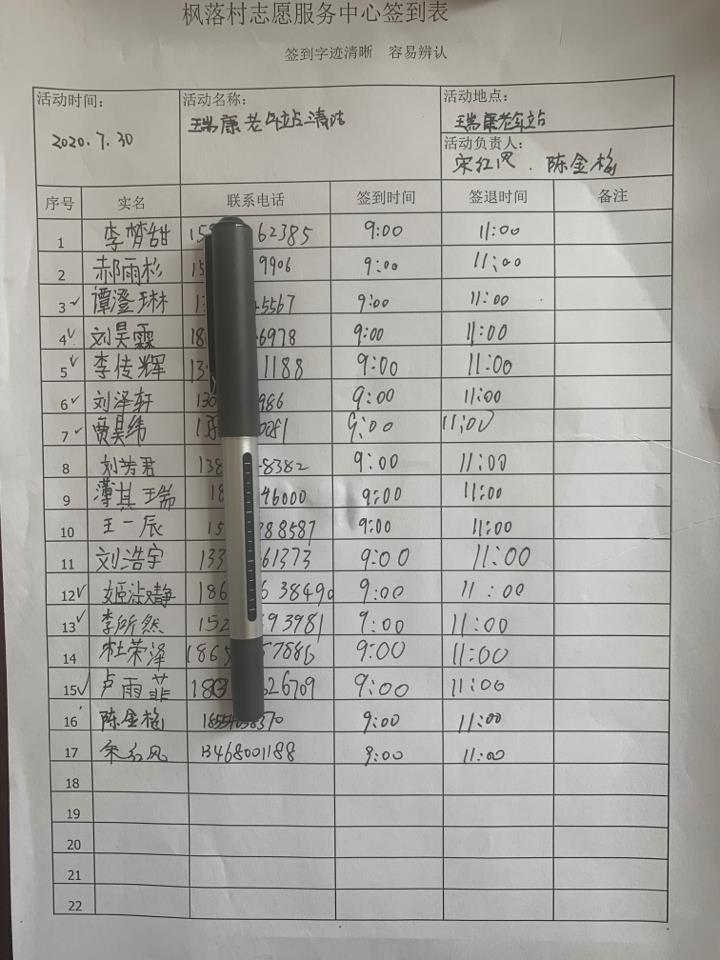 枫落村志愿服务中心签到表
签到字迹清晰 容易辨认
活动时间: 活动名称: 活动地点:
2020.7.30 瑞康老年站清洁 瑞康老年站
活动负责人:
宋红凤. 陈金梅
序号 实名 联系电话 签到时间 签退时间 备注
1 李梦甜 15 62385 9:00 11:00
2 郝雨杉 15 9906 9:00 11:00
3 ✓ 谭澄琳 13 5567 9:00 11:00
4 ✓ 刘昊霖 18 6978 9:00 11:00
5 ✓ 李传辉 13 1188 9:00 11:00
6 ✓ 刘泽轩 130 986 9:00 11:00
7 ✓ 贾昊纬 0081 9:00 11:00
8 刘芳君 138 8382 9:00 11:00
9 薄其瑞 18 46000 9:00 11:00
10 王一辰 15 388587 9:00 11:00
11 刘浩宇 133 61373 9:00 11:00
12 ✓ 姬淑静 186 6 3849 9:00 11:00
13 ✓ 李所然 152 93981 9:00 11:00
14 杜荣泽 1865 57886 9:00 11:00
15 ✓ 卢雨菲 180 626709 9:00 11:00
16 陈金梅 9:00 11:00
17 宋红凤 13468001188 9:00 11:00
18
19
20
21
22